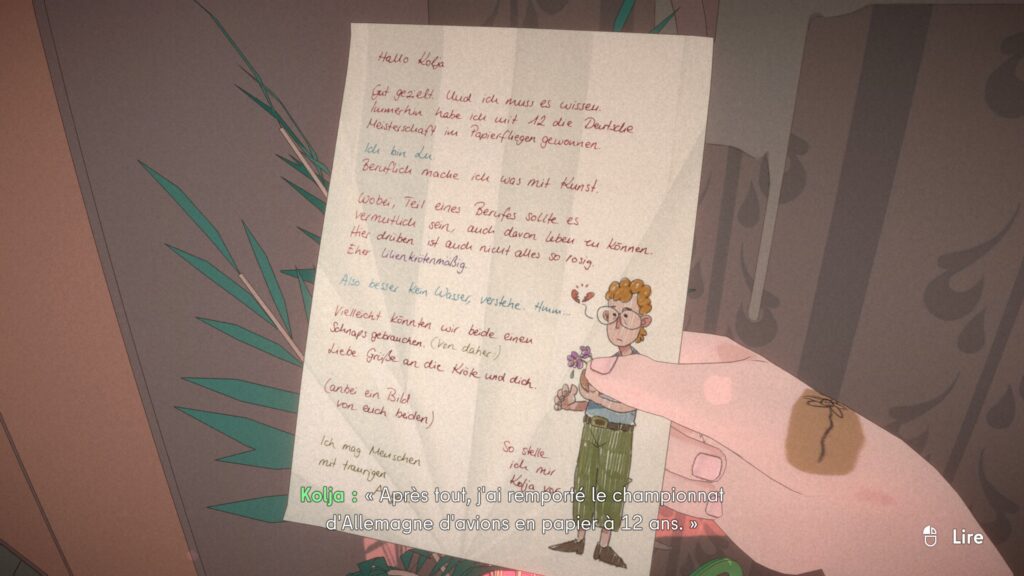 Hallo Kolja
Gut gezielt. Und ich muss es wissen.
Immerhin habe ich mit 12 die Deutsche
Meisterschaft im Papierfliegen gewonnen.
Ich bin Lu
Beruflich mache ich was mit Kunst.
Wobei, Teil eines Berufes sollte es
vermutlich sein, auch davon leben zu können.
Hier drüben ist auch nicht alles so rosig.
Eher lilienkrötenmäßig.
Also besser kein Wasser, verstehe. Hmm...
Vielleicht könnten wir beide einen
Schnaps gebrauchen. (Von daher)
Liebe Grüße an die Kröte und dich.
(anbei ein Bild
von euch beiden)
Ich mag Menschen
mit traurigen
So stelle
ich mir
Kolja vor
Kolja : « Après tout, j'ai remporté le championnat
d'Allemagne d'avions en papier à 12 ans. »
Lire